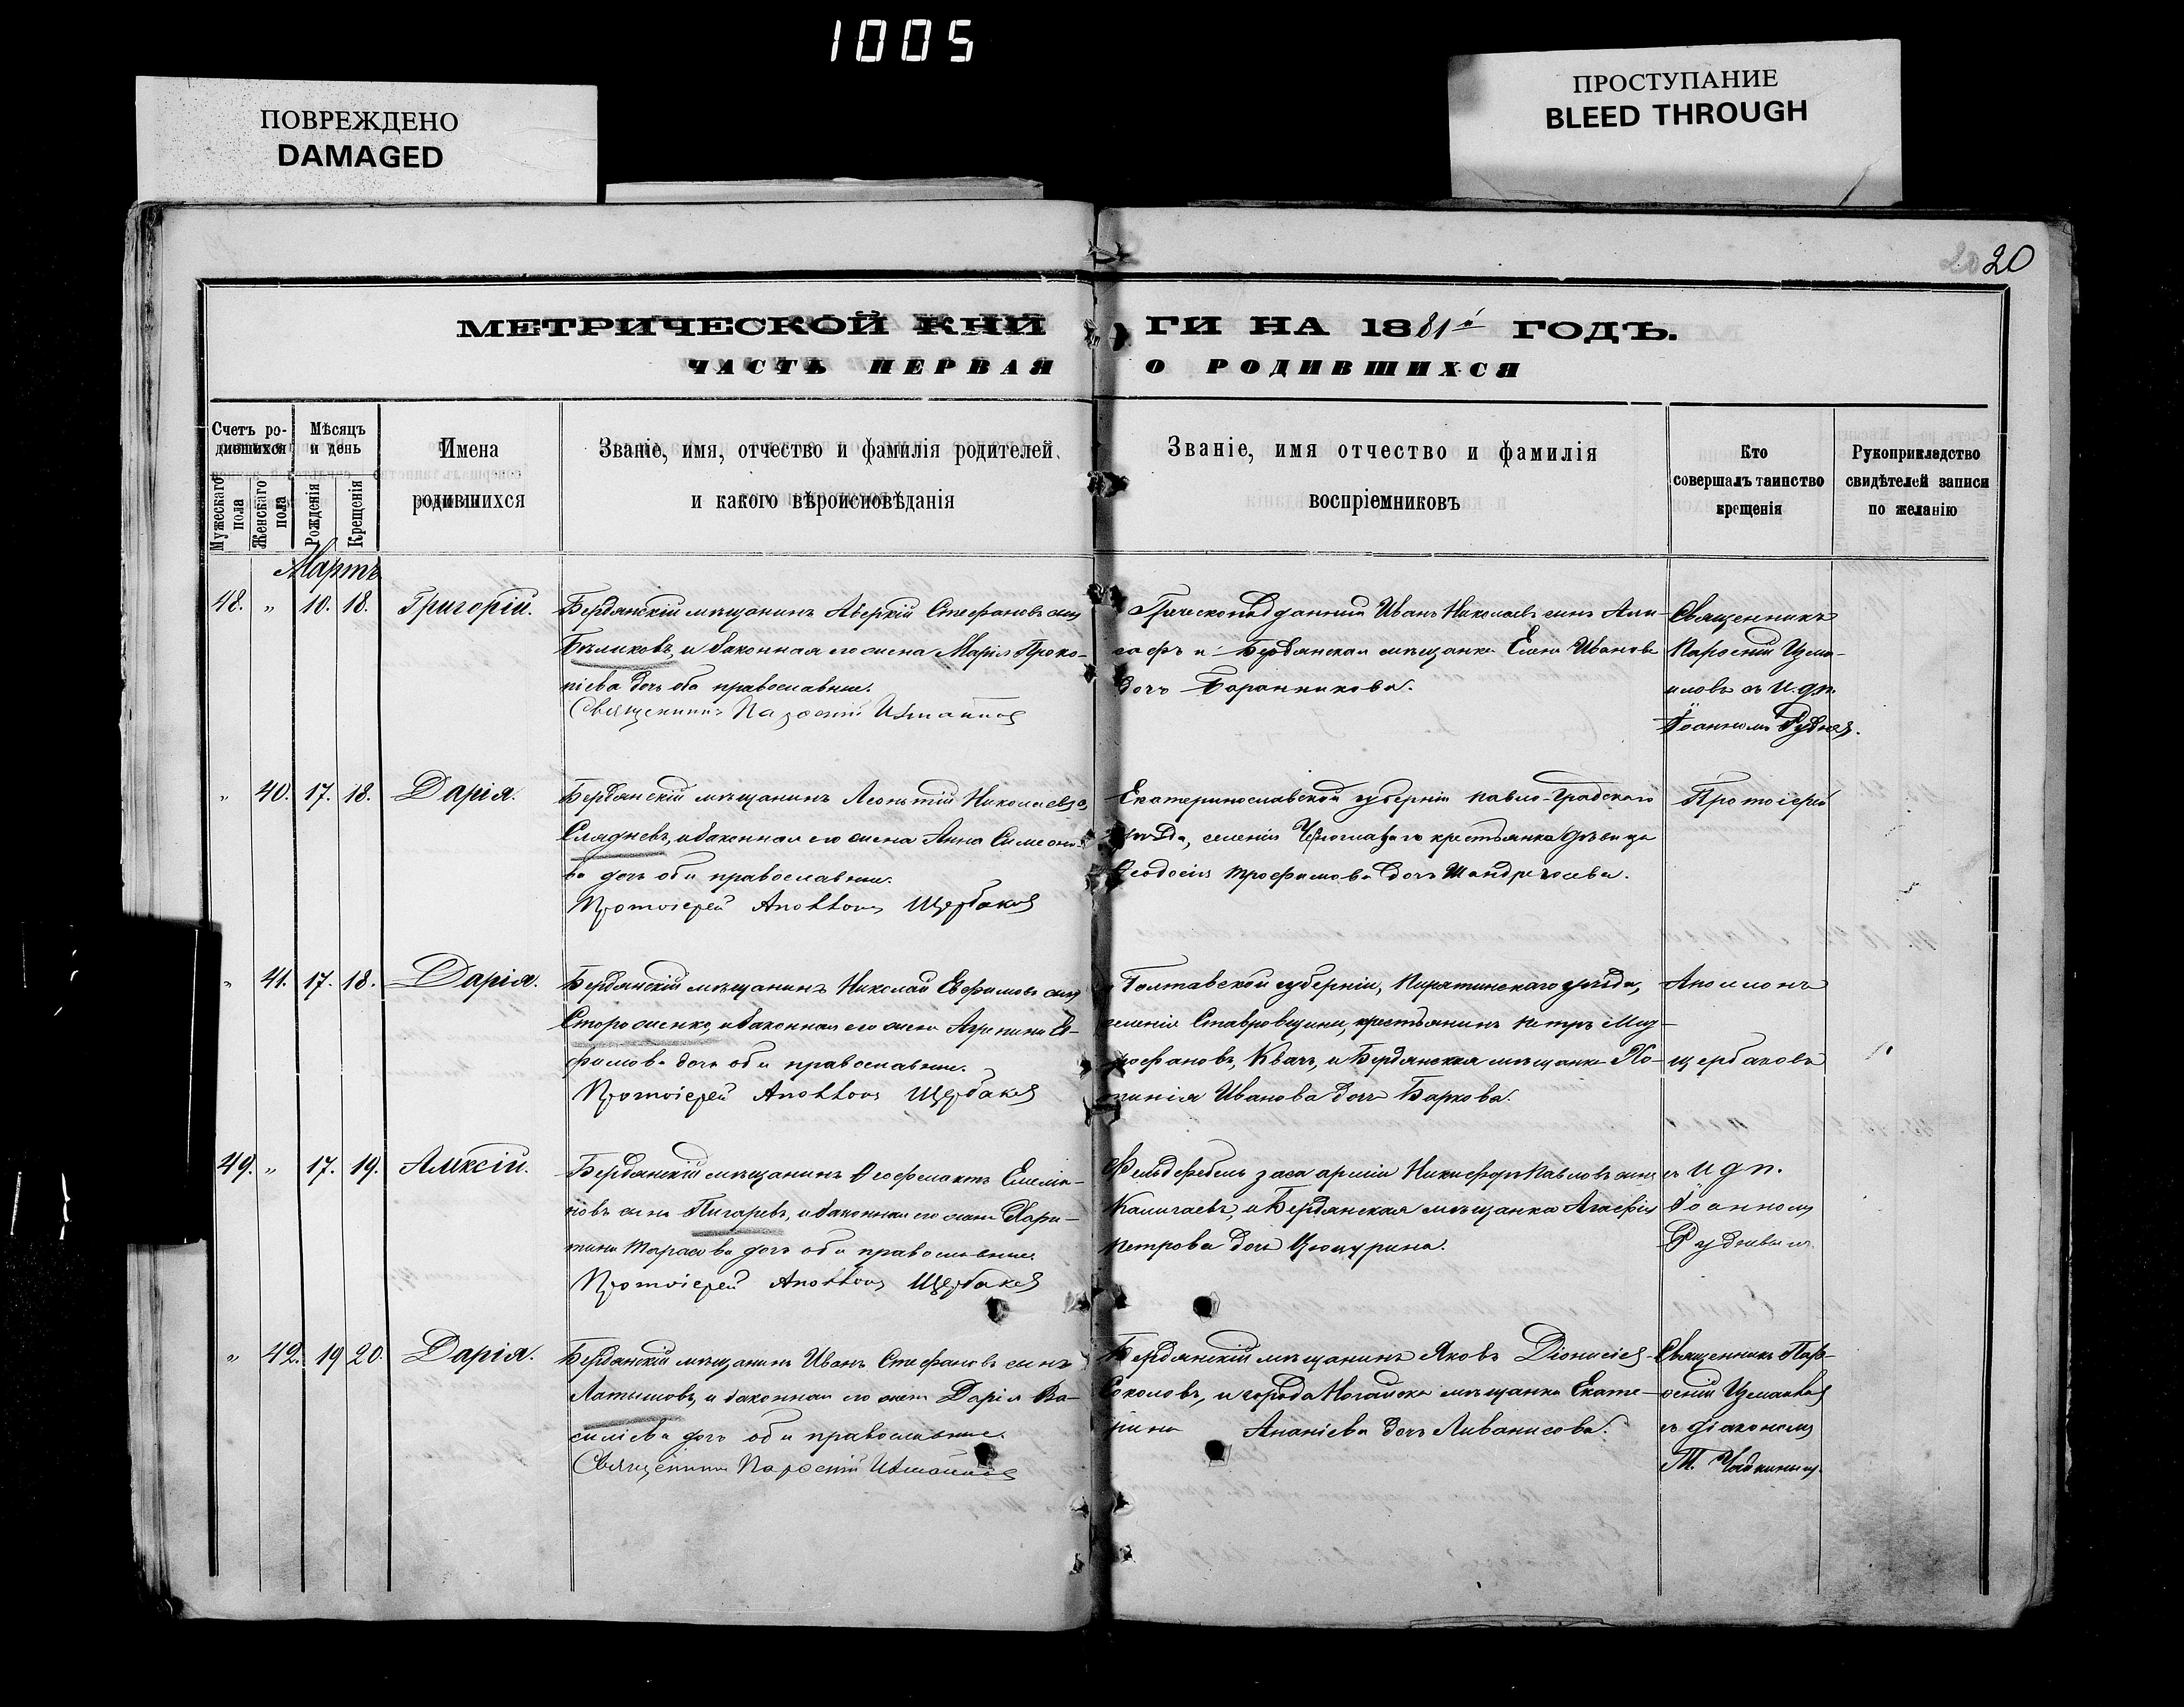 1005
ПОВРЕЖДЕНО
DAMAGED
ПРОСТУПАНИЕ
BLEED THROUGH
20 20
МЕТРИЧЕСКОЙ КНИ ГИ НА 1881й ГОДЪ.
ЧАСТЬ ПЕРВАЯ О РОДИВШИХСЯ
Счетъ ро-
дившихся
Мужескаго пола
Женскаго пола
Мѣсяцъ
и день
Рожденія
Крещенія
Имена
родившихся
Званіе, имя, отчество и фамилія родителей
и какого вѣроисповѣданія
Званіе, имя отчество и фамилія
воспріемниковъ
Кто
совершалъ таинство
крещенія
Рукоприкладство
свидѣтелей записи
по желанію
Мартъ
48. " 10. 18. Григорій.
Бердянскій мѣщанинъ Аверкій Стефановъ сынъ
Бѣликовъ, и законная его жена Марія Проко-
піева дочь оба православные.
Священникъ Парѳеній Измаиловъ
Греческоподданный Иванъ Николаевъ сынъ
и Бердянская мѣщанка Елена Иванова
дочь Баранникова.
Священникъ
Парѳеній Изма-
иловъ съ и. д. п.
Іоанномъ
" 40. 17. 18. Дарія.
Бердянскій мѣщанинъ Леонтій Николаевъ
Слядневъ, и законная его жена Анна Симеоно-
ва дочь оба православные.
Протоіерей Аполлонъ Щербаковъ
Екатеринославской губерніи Павло-Градскаго
уѣзда, селенія крестьянка дѣвица
Ѳеодосія Трофимова дочь
Протоіерей
" 41. 17. 18. Дарія.
Бердянскій мѣщанинъ Николай Евфимовъ сынъ
Стороженко, и законная его жена Агрипина Е-
фимова дочь оба православные.
Протоіерей Аполлонъ Щербаковъ
Полтавской губерніи, Пирятинскаго уѣзда,
селенія Ставровщины, крестьянинъ Петръ Мит-
рофановъ, Квачъ, и Бердянская мѣщанка
Иванова дочь Баркова.
Аполлонъ
Щербаковъ
49. " 17. 19. Алексій.
Бердянскій мѣщанинъ Ѳеофилактъ Емелія-
новъ сынъ Пигаревъ, и законная его жена Хари-
тина Тарасова дочь оба православные.
Протоіерей Аполлонъ Щербаковъ
Фельдфебель запа арміи Никифоръ Павловъ сынъ
и Бердянская мѣщанка Агафія
Петрова дочь
съ и д п.
Іоанномъ
" 42. 19 20. Дарія.
Бердянскій мѣщанинъ Иванъ Стефановъ сынъ
Латышовъ, и законная его жена Дарія Ва-
силіева дочь оба православные.
Священникъ Парѳеній Измаиловъ
Бердянскій мѣщанинъ Яковъ Діонисіев
Соколовъ, и города Ногайска мѣщанка Екате-
рина Ананіева дочь Ливанисова.
Священникъ Парѳ-
еній Измаиловъ
съ діакономъ